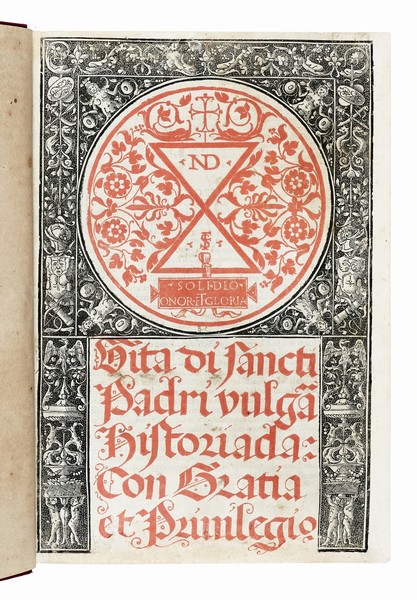 ND
SOLI·DIO
ONOR·ET·GLORIA
Vita di sancti
Padri vulgã
Historiada:
Con Gratia
et Priuilegio